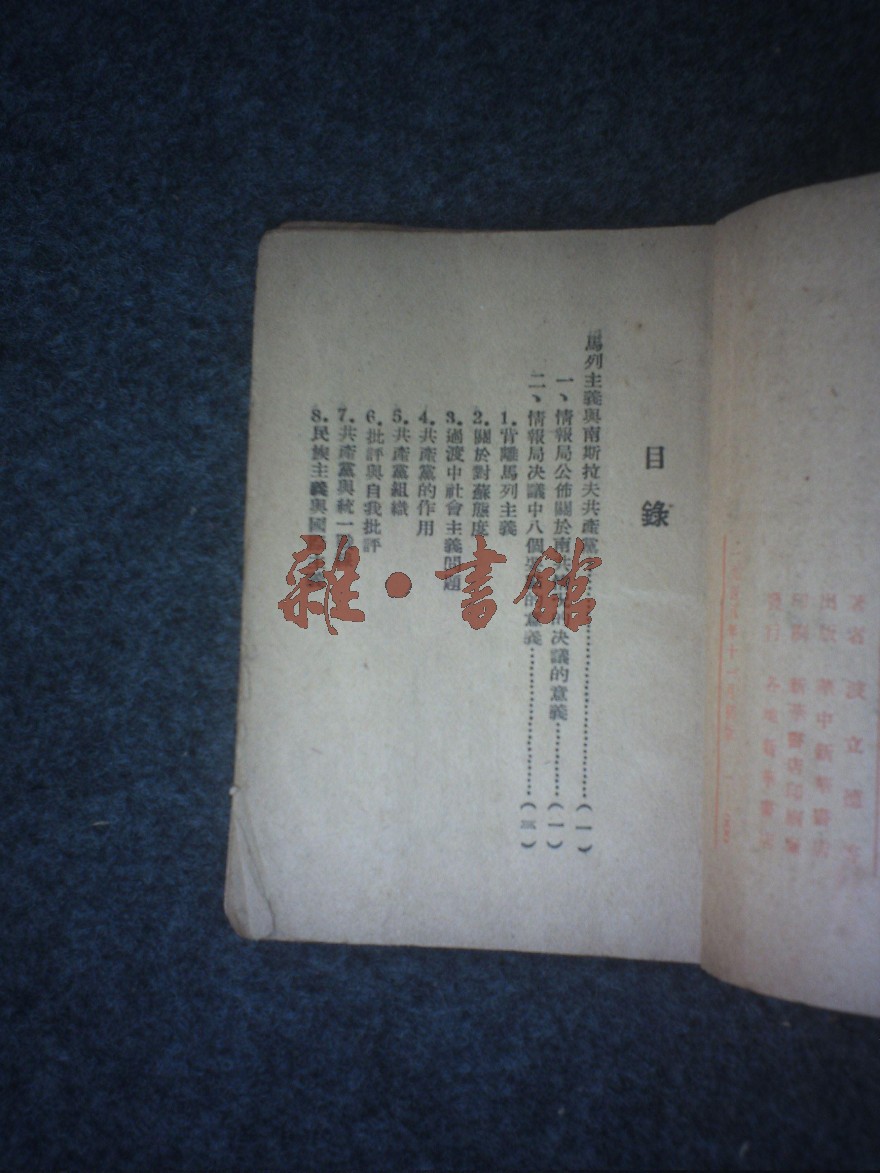 目錄
馬列主義與南斯拉夫共產黨……………………………(一)
一、情報局公佈關於南共 決議的意義…………(一)
二、情報局決議中八個 的意義……………………(三)
1.背離馬列主義
2.關於對蘇態度
3.過渡中社會主義問題
4.共產黨的作用
5.共產黨組織
6.批評與自我批評
7.共產黨與統一
8.民族主義與國
雜·書館
著者 波立
出版 華中新華書店
印刷 新華書店印刷
發行 新華書店
年十一月